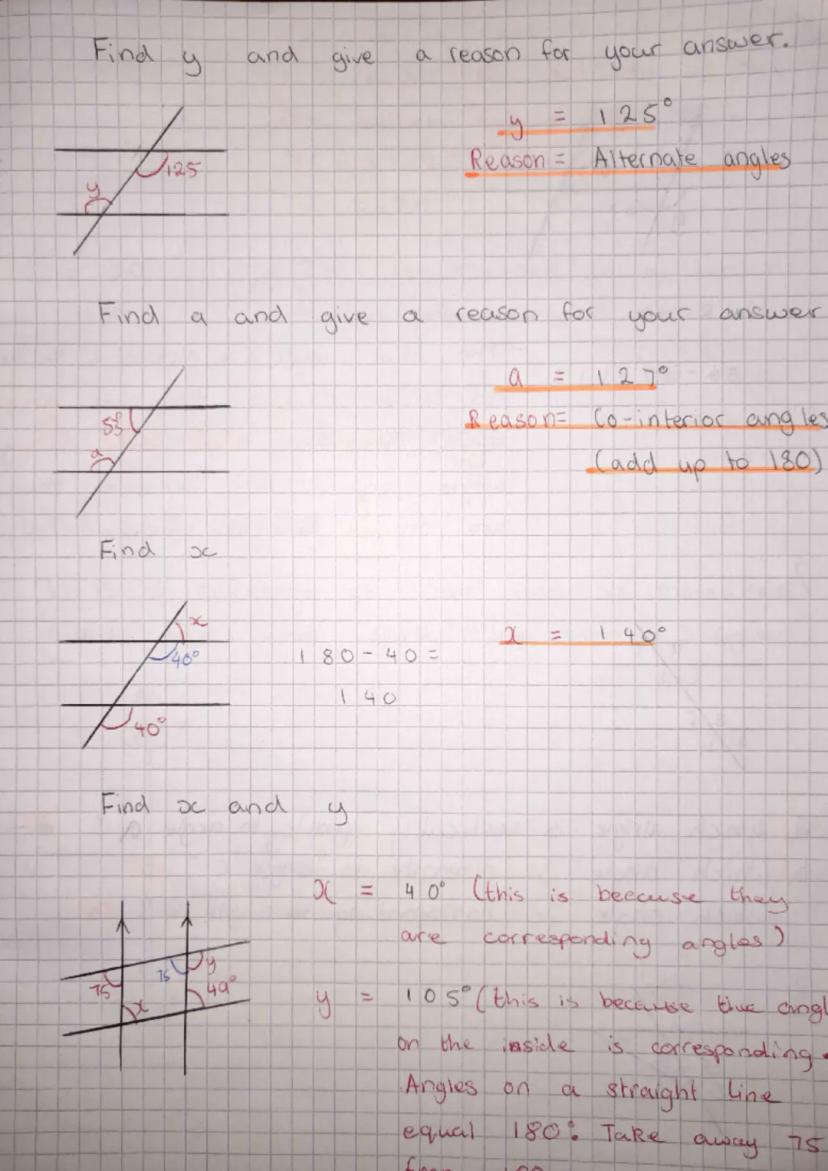 Find y and give a reason for your answer.
y = 125°
Reason = Alternate angles
125
y
Find a and give a reason for your answer
a = 127°
Reason = Co-interior angles
(add up to 180)
53°
a
Find x
x
40°
180 - 40 =
140
x = 140°
40°
Find x and y
x = 40° (this is because they
are corresponding angles)
y
75
75
49°
x
y = 105° (this is because the angl
on the inside is corresponding.
Angles on a straight line
equal 180: Take away 75